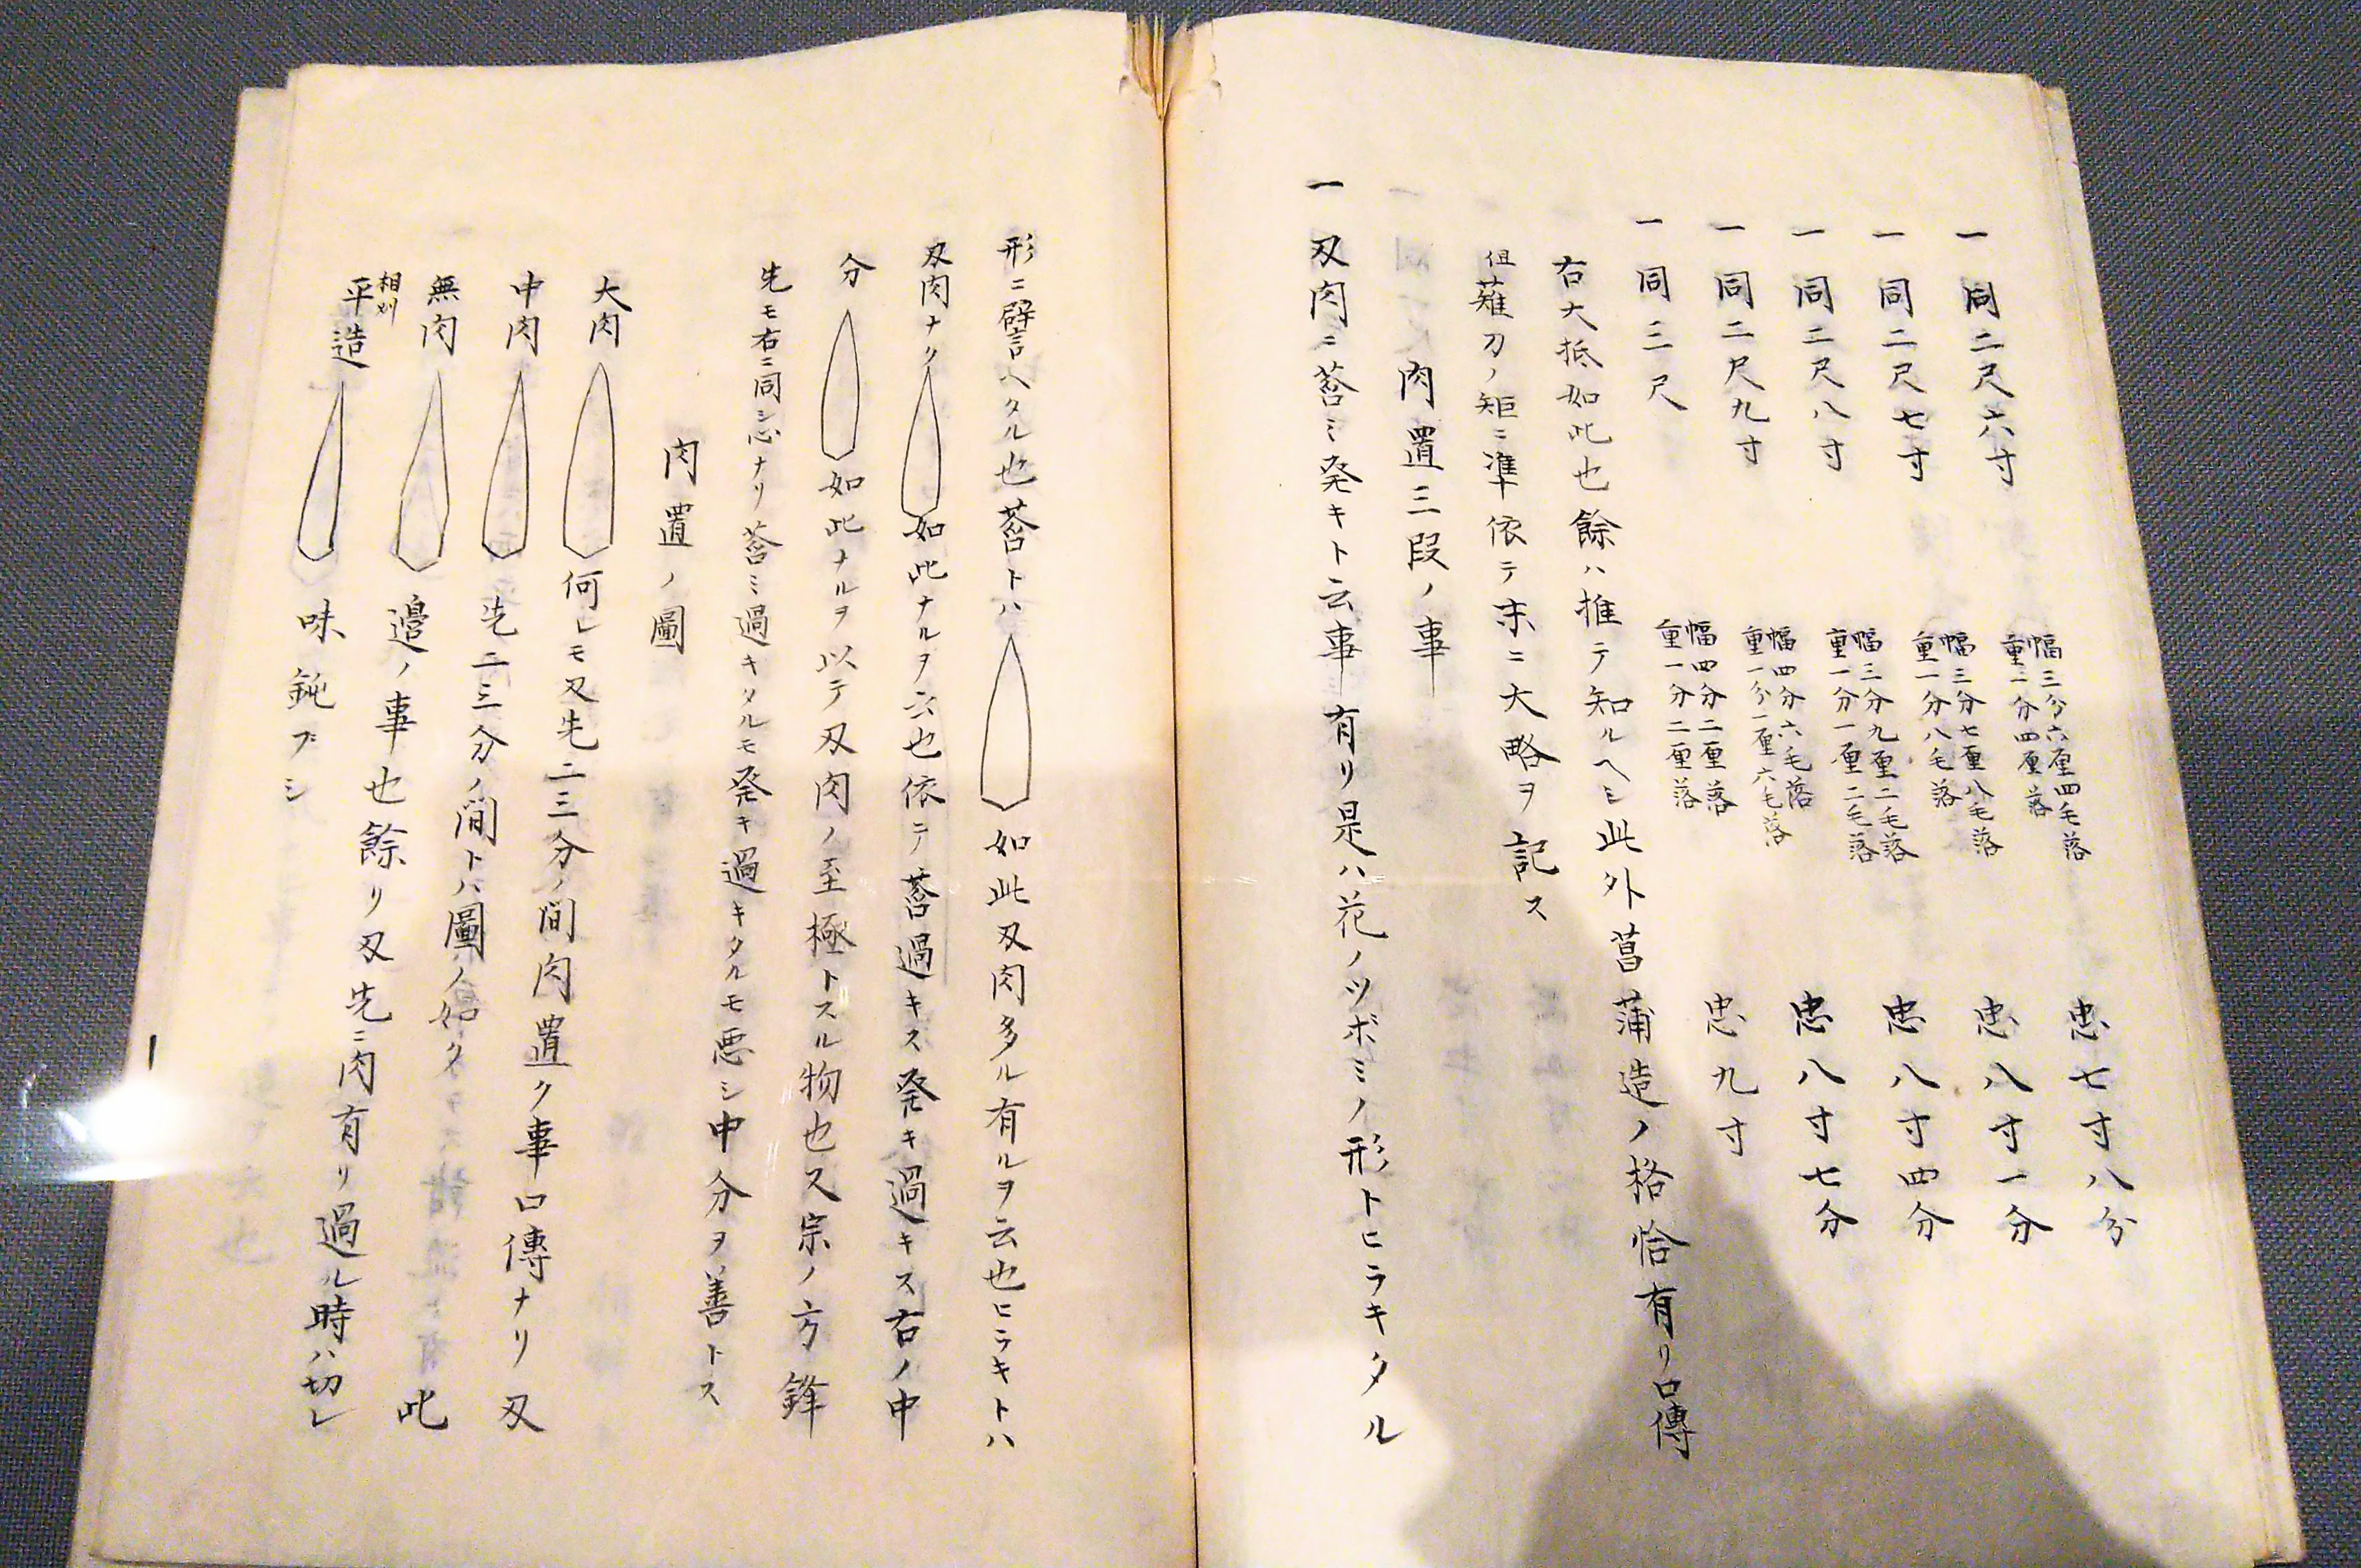 一同二尺六寸 幅三分六厘四毛落 重一分四厘落 忠七寸八分
一同二尺七寸 幅三分七厘八毛落 重一分八毛落 忠八寸一分
一同二尺八寸 幅三分九厘二毛落 重一分一厘二毛落 忠八寸四分
一同二尺九寸 幅四分六毛落 重一分一厘六毛落 忠八寸七分
一同三尺 幅四分二厘落 重一分二厘落 忠九寸
右大抵如此也餘ハ推テ知ルヘシ此外菖蒲造ノ格恰有リ口傳
但薙刀ノ矩ニ準依テ末ニ大略ヲ記ス
肉置三段ノ事
一刄肉ニ莟ミ発キト云事有リ是ハ花ノツボミノ形トヒラキタル
形ニ譬ヘタル也莟トハ如此刄肉多ル有ルヲ云也ヒラキトハ
刄肉ナク如此ナルヲ云也依テ莟過キス発キ過キス右ノ中
分如此ナルヲ以テ刄肉ノ至極トスル物也又宗ノ方鋒
先モ右ニ同シ心ナリ莟ミ過キタルモ発キ過キタルモ悪シ中分ヲ善トス
肉置ノ圖
大肉 何レモ刄先二三分ノ間肉置ク事口傳ナリ刄
中肉 先二三分ノ間トハ圖ノ如ク此
無肉 邉ノ事也餘リ刄先ニ肉有リ過ル時ハ切レ
相州
平造 味鈍ブシ